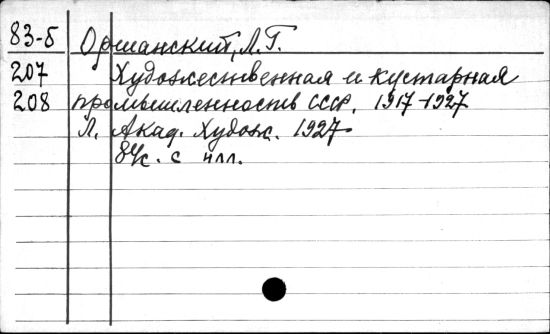 83-5 Оршанский, Л.Г.
207 Художественная и кустарная
208 промышленность СССР. 1917-1927
Л. Акад. Худож. 1927
84с. с илл.